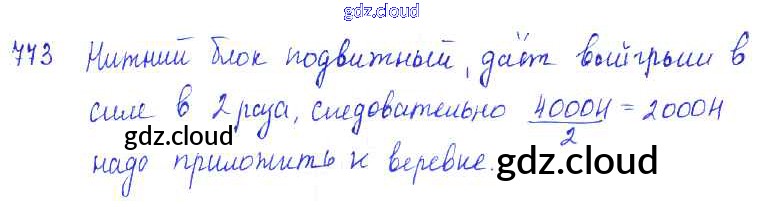 gdz.cloud
773 Нижний блок подвижный, даёт выйгрыш в
силе в 2 раза, следовательно 4000Н/2 = 2000Н
gdz.cloud
надо приложить к веревке. gdz.cloud